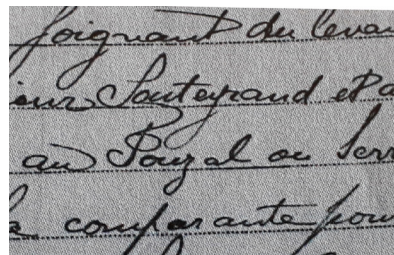 Joignant du levan
ieur Sauteyrand et a
au Pouzal ou Serr
la comparante pour